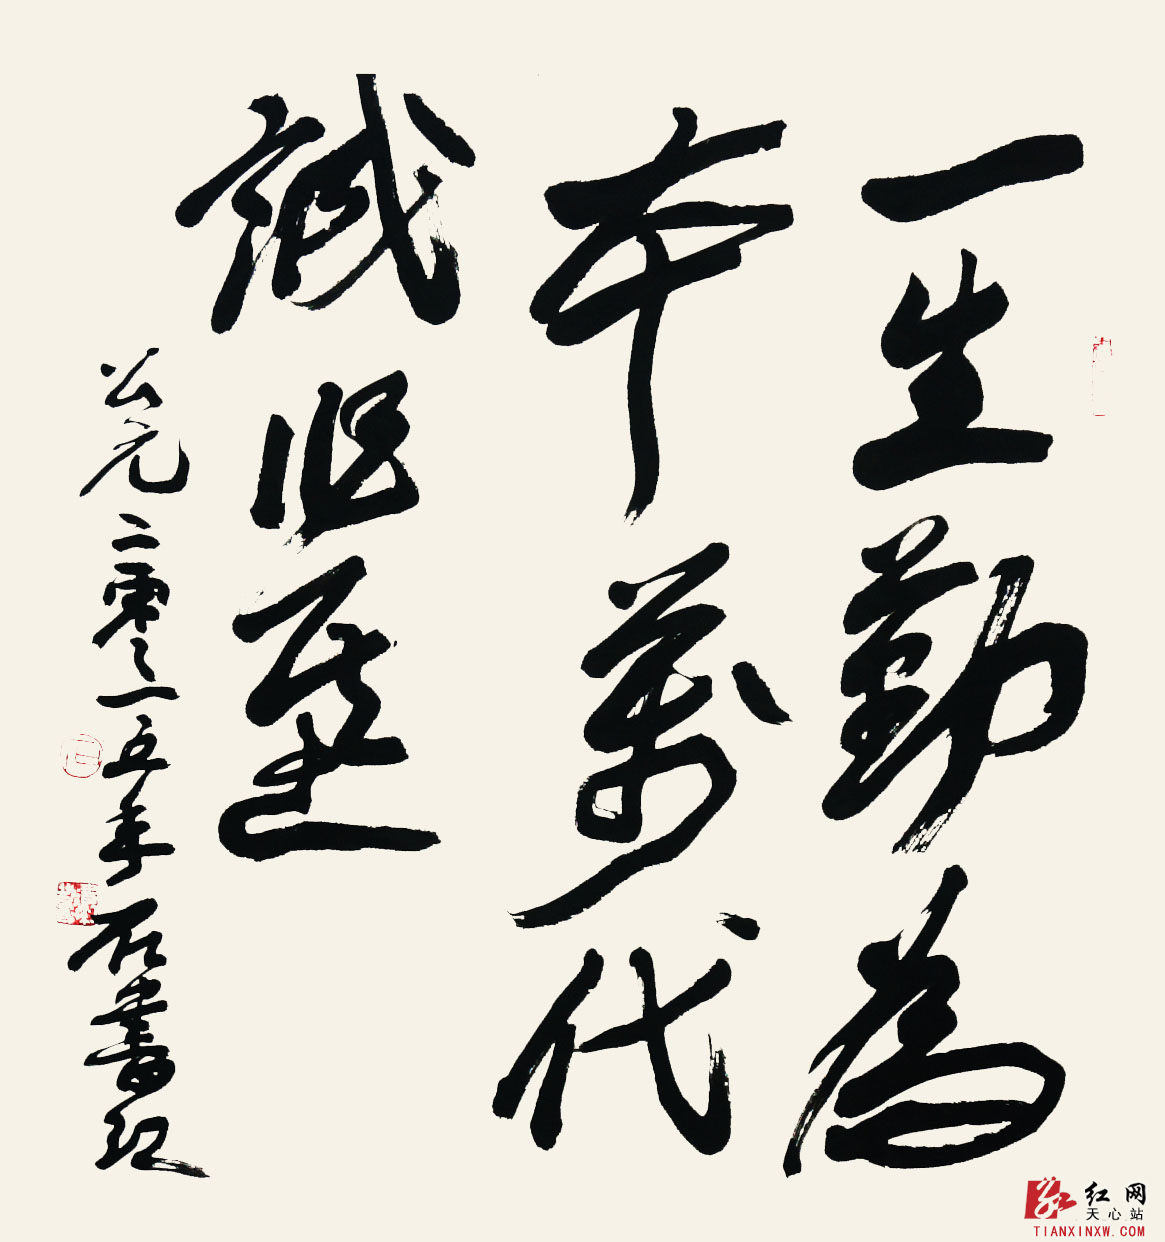 一生勤為
本萬代
誠作基
公元二零一五年
红网
天心站
TIANXINXW.COM